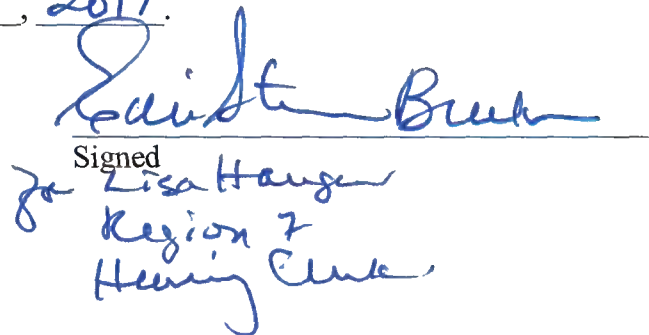 , 2017.
Signed
for Lisa Haugen
Region 7
Hearing Clerk